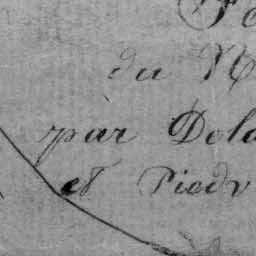 Fo
du N
par Dola
et Piedv